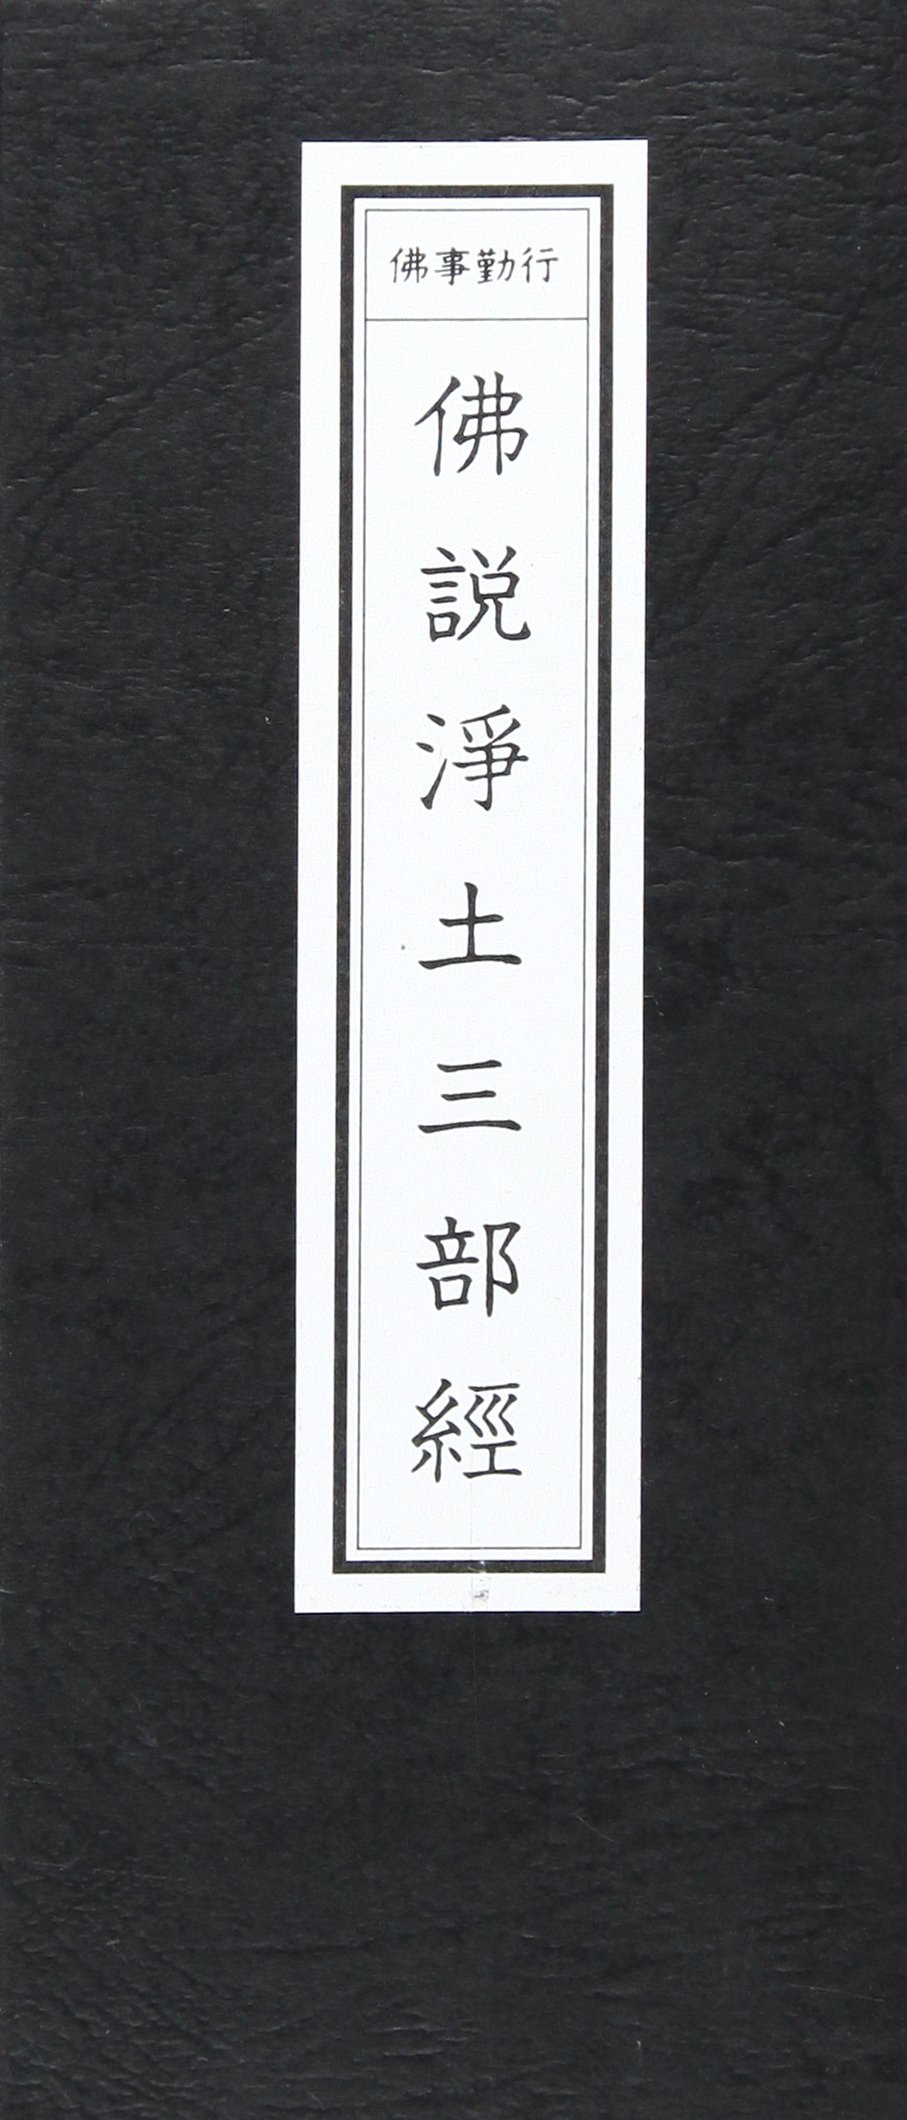 佛事勤行
佛説淨土三部經